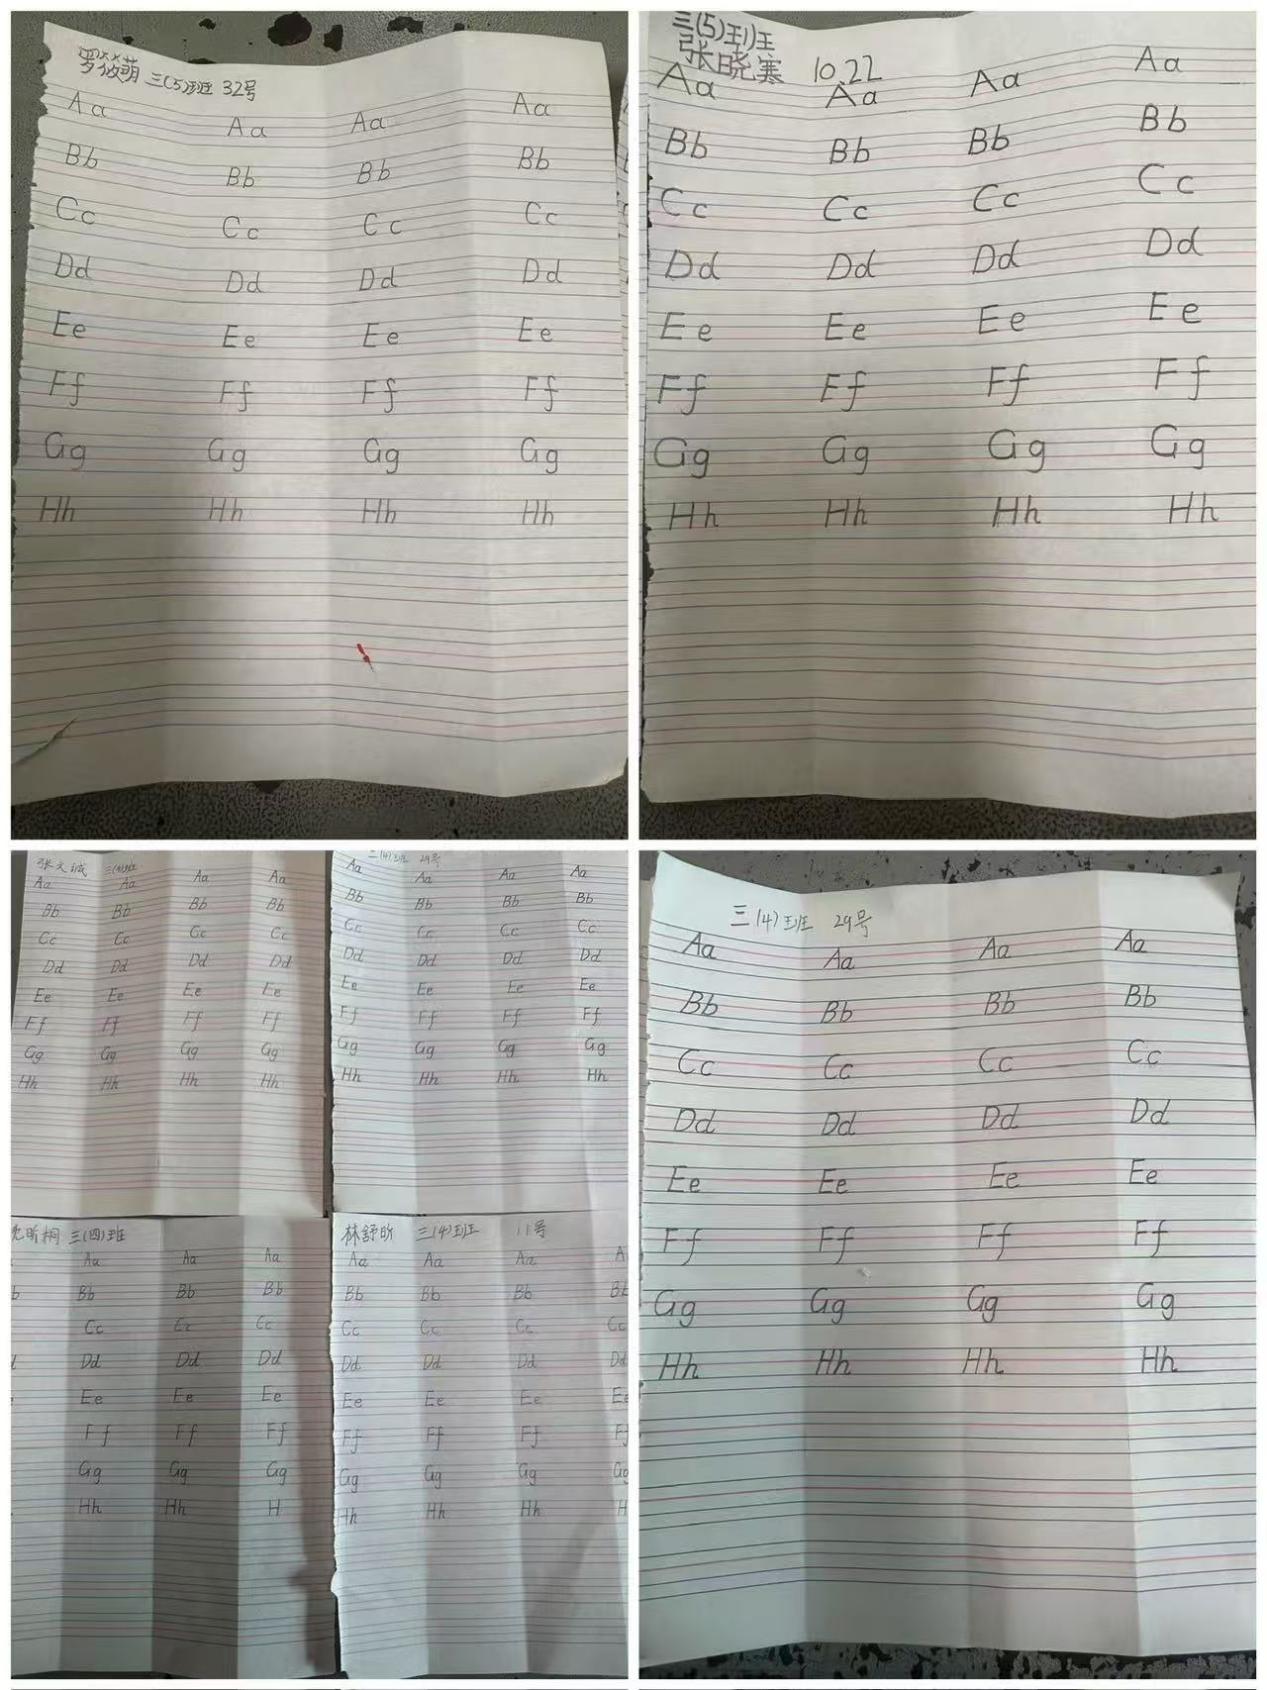 罗筱萌 三(5)班 32号
Aa Aa Aa Aa
Bb Bb Bb Bb
Cc Cc Cc Cc
Dd Dd Dd Dd
Ee Ee Ee Ee
Ff Ff Ff Ff
Gg Gg Gg Gg
Hh Hh Hh Hh
三(5)班
张晓寒 10.22
Aa Aa Aa Aa
Bb Bb Bb Bb
Cc Cc Cc Cc
Dd Dd Dd Dd
Ee Ee Ee Ee
Ff Ff Ff Ff
Gg Gg Gg Gg
Hh Hh Hh Hh
张文诚 三(4)班
Aa Aa Aa Aa
Bb Bb Bb Bb
Cc Cc Cc Cc
Dd Dd Dd Dd
Ee Ee Ee Ee
Ff Ff Ff Ff
Gg Gg Gg Gg
Hh Hh Hh Hh
三(4)班 29号
Aa Aa Aa Aa
Bb Bb Bb Bb
Cc Cc Cc Cc
Dd Dd Dd Dd
Ee Ee Ee Ee
Ff Ff Ff Ff
Gg Gg Gg Gg
Hh Hh Hh Hh
昕桐 三(四)班
Aa Aa Aa
b Bb Bb Bb
Cc Cc Cc
Dd Dd Dd
Ee Ee Ee
Ff Ff Ff
Gg Gg Gg
Hh Hh H
林舒昕 三(4)班 11号
Aa Aa Aa A
Bb Bb Bb Bb
Cc Cc Cc Cc
Dd Dd Dd Dd
Ee Ee Ee Ee
Ff Ff Ff Ff
Gg Gg Gg Gg
Hh Hh Hh H
三(4)班 29号
Aa Aa Aa Aa
Bb Bb Bb Bb
Cc Cc Cc Cc
Dd Dd Dd Dd
Ee Ee Ee Ee
Ff Ff Ff Ff
Gg Gg Gg Gg
Hh Hh Hh Hh